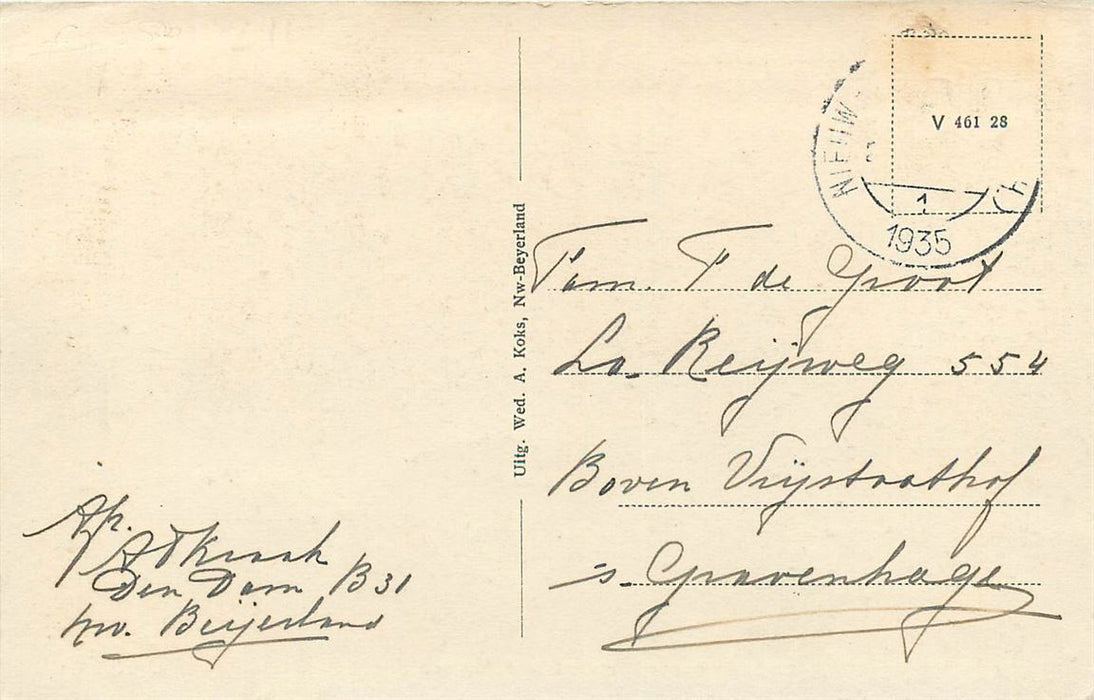 NIEUW
1
1935
V 461 28
Uitg. Wed. A. Koks, Nw-Beyerland
Fam. T de Groot
La. Reijweg 554
Boven Vrijstaathof
s. Gravenhage
Afz.
Den Dam B 31
nw. Beijerland